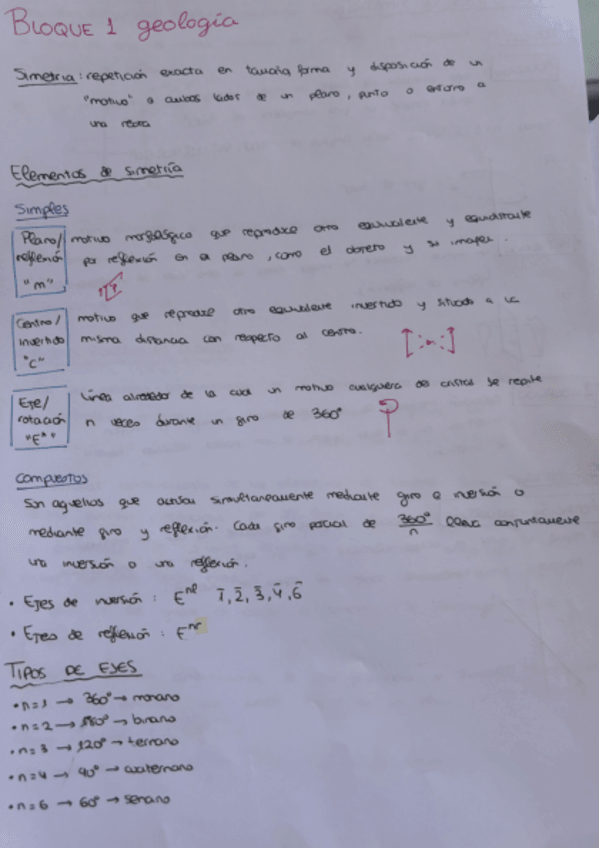 BLOQUE 1 geología
Simetría: repetición exacta en tamaño, forma y disposición de un
"motivo" a ambos lados de un plano, punto o entorno a
una recta
Elementos de simetría
Simples
Plano/ motivo morfológico que reproduce otro equivalente y equidistante
reflexión por reflexión en el plano, como el objeto y su imagen.
"m"
Centro/ motivo que reproduce otro equivalente invertido y situado a la
invertido misma distancia con respecto al centro.
"C"
Eje/ línea alrededor de la cual un motivo cualquiera del cristal se repite
rotación n veces durante un giro de 360°
"Eⁿ"
Compuestos
Son aquellos que actúan simultáneamente mediante giro e inversión o
mediante giro y reflexión. Cada giro parcial de 360°/n lleva conjuntamente
una inversión o una reflexión.
• Ejes de inversión: Eⁿⁱ 1̄, 2̄, 3̄, 4̄, 6̄
• Ejes de reflexión: Eⁿʳ
TIPOS DE EJES
• n=1 → 360° → monario
• n=2 → 180° → binario
• n=3 → 120° → ternario
• n=4 → 90° → cuaternario
• n=6 → 60° → senario